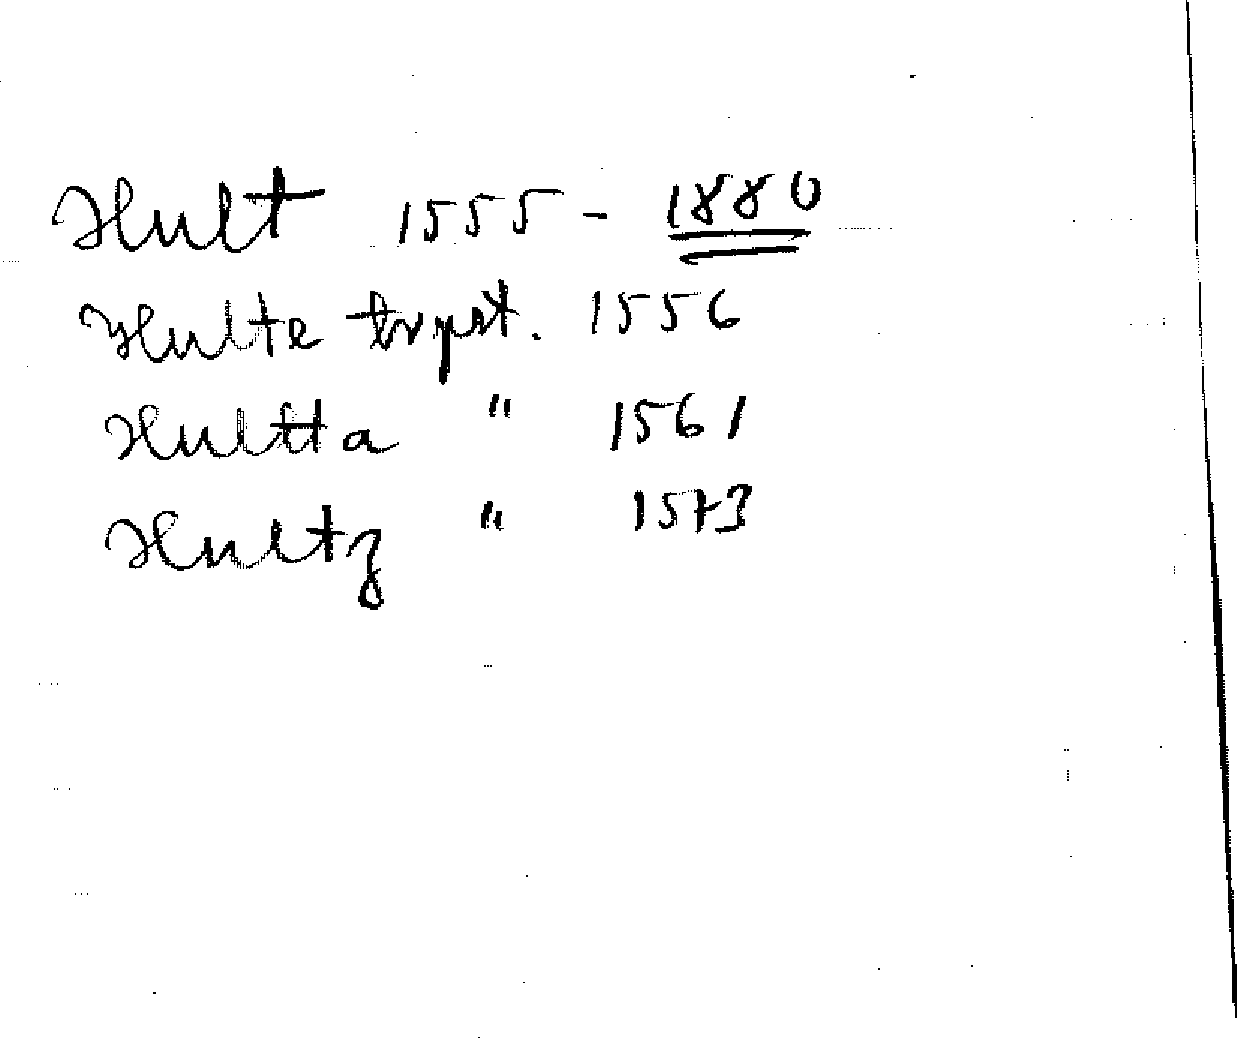 Hult 1555 - 1880
Hulte torpst. 1556
Hultta " 1561
Hultz " 1573